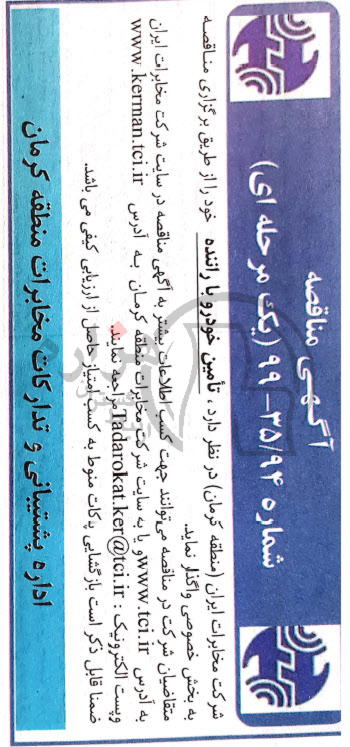 آگهی مناقصه
شماره ۳۵/۹۴-۹۹ (یک مرحله ای)
شرکت مخابرات ایران (منطقه کرمان) در نظر دارد ، تأمین خودرو با راننده خود را از طریق برگزاری مناقصه
به بخش خصوصی واگذار نماید.
متقاضیان شرکت در مناقصه می‌توانند جهت کسب اطلاعات بیشتر به آگهی مناقصه در سایت شرکت مخابرات ایران
به آدرس www.tci.ir و یا به سایت شرکت مخابرات منطقه کرمان به آدرس www.kerman.tci.ir
وپست الکترونیک : Tadarokat.ker@tci.ir مراجعه نمایند.
ضمنا قابل ذکر است بازگشایی پاکات منوط به کسب امتیاز حاصل از ارزیابی کیفی می باشد.
اداره پشتیبانی و تدارکات مخابرات منطقه کرمان